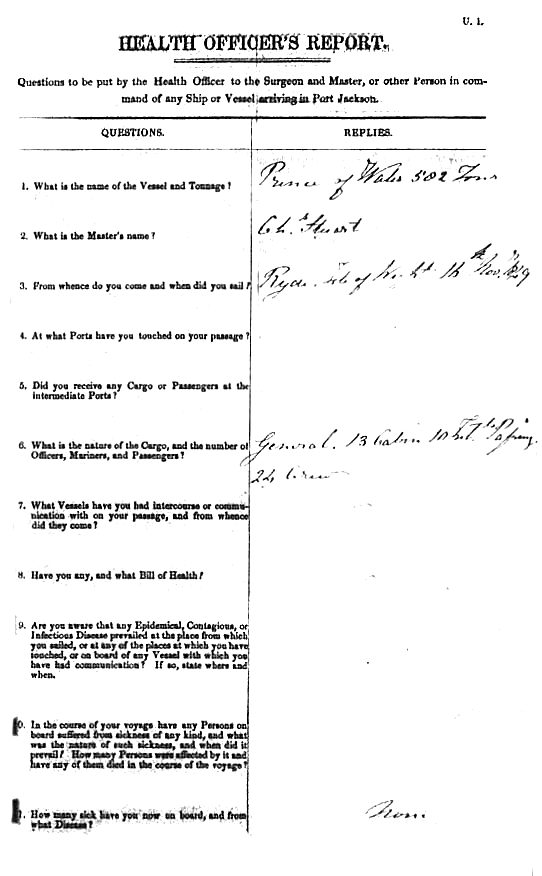 U. 1.
HEALTH OFFICER'S REPORT.
Questions to be put by the Health Officer to the Surgeon and Master, or other Person in com-
mand of any Ship or Vessel arriving in Port Jackson.
QUESTIONS. REPLIES.
1. What is the name of the Vessel and Tonnage? Prince of Wales 502 Tons
2. What is the Master's name? Chs Stuart
3. From whence do you come and when did you sail? Ryde Isle of Wight 14th Novr 1849
4. At what Ports have you touched on your passage?
5. Did you receive any Cargo or Passengers at the
intermediate Ports?
6. What is the nature of the Cargo, and the number of
Officers, Mariners, and Passengers? General. 13 Cabin 10
24 Crew
7. What Vessels have you had intercourse or commu-
nication with on your passage, and from whence
did they come?
8. Have you any, and what Bill of Health?
9. Are you aware that any Epidemical, Contagious, or
Infectious Disease prevailed at the place from which
you sailed, or at any of the places at which you have
touched, or on board of any Vessel with which you
have had communication? If so, state where and
when.
0. In the course of your voyage have any Persons on
board suffered from sickness of any kind, and what
was the nature of such sickness, and when did it
prevail? How many Persons were affected by it and
have any of them died in the course of the voyage?
1. How many sick have you now on board, and from
what Disease? None